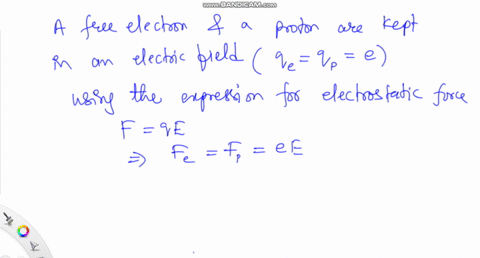 www.BANDICAM.com
A free electron & a proton are kept
in an electric field ( qe = qp = e )
using the expression for electrostatic force
F = qE
⇒ Fe = Fp = eE